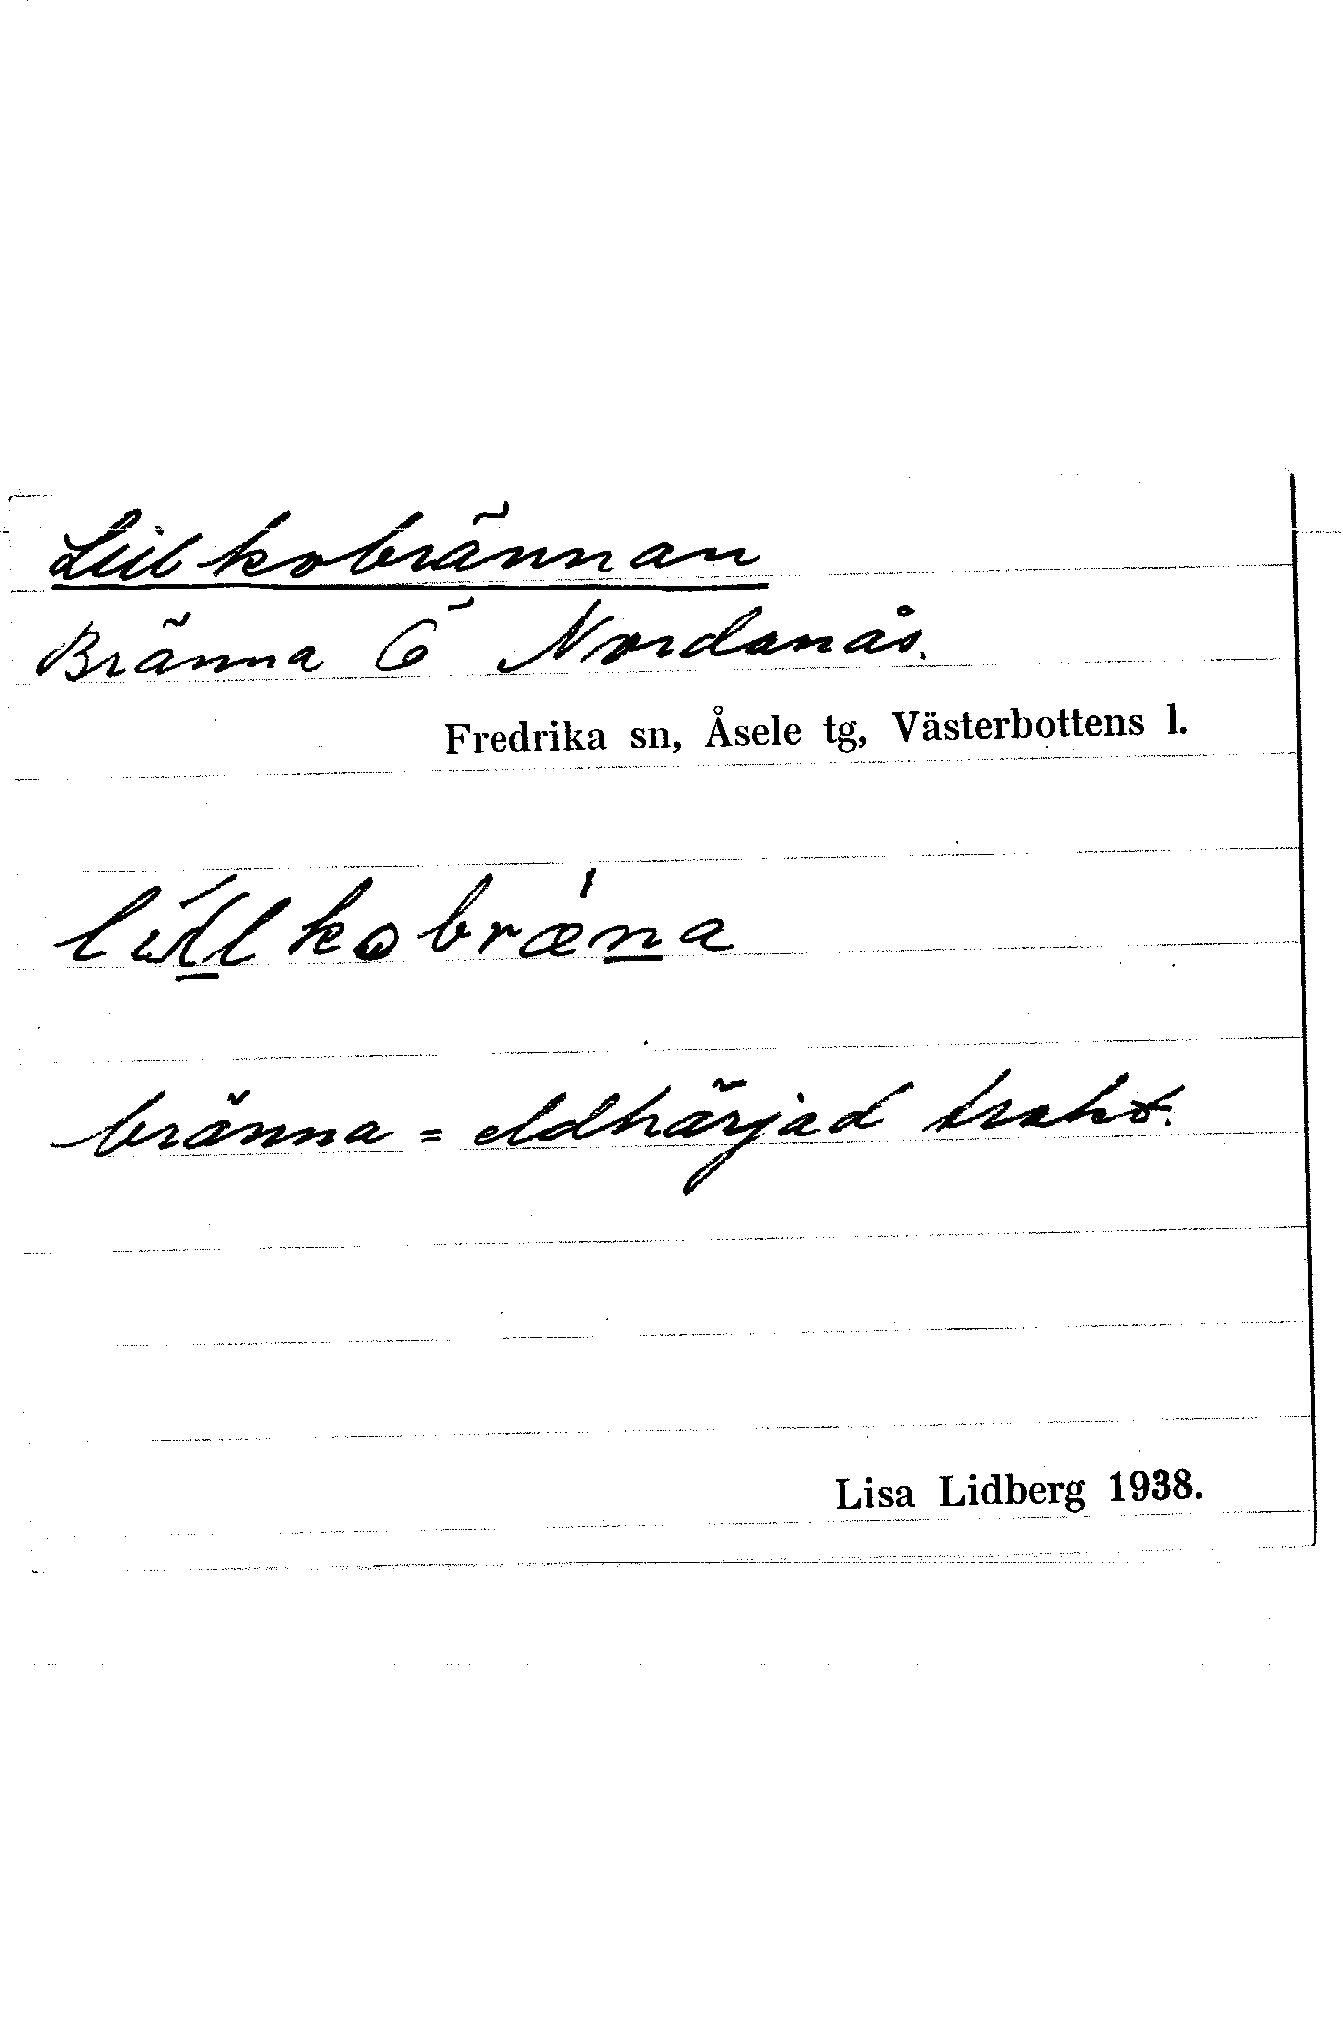 Lillkobrännan
Bränna Ö Nordanås.
Fredrika sn, Åsele tg, Västerbottens l.
bränna = eldhärjad trakt.
Lisa Lidberg 1938.